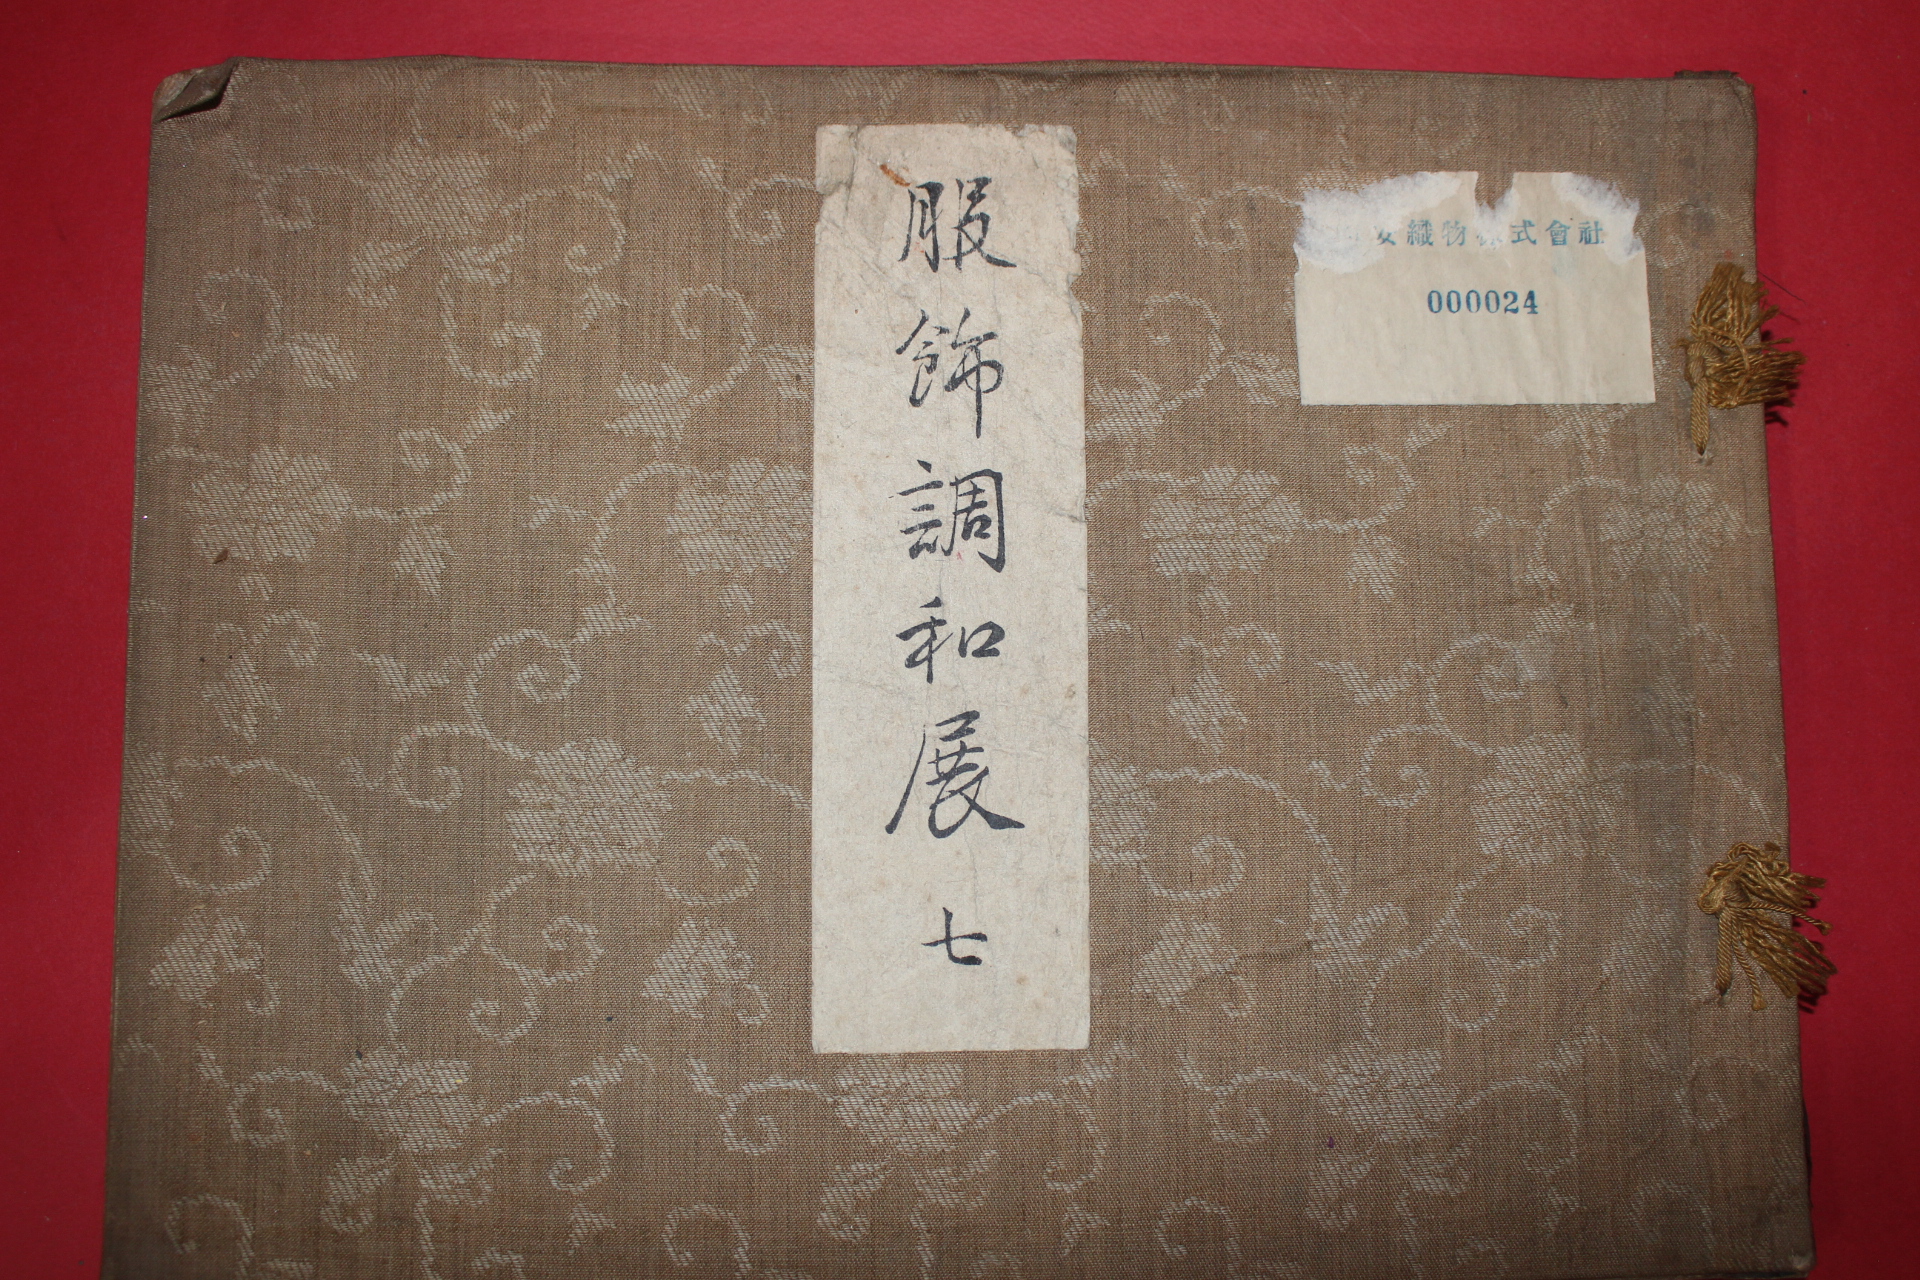 服飾調和展 七
安織物株式會社
000024